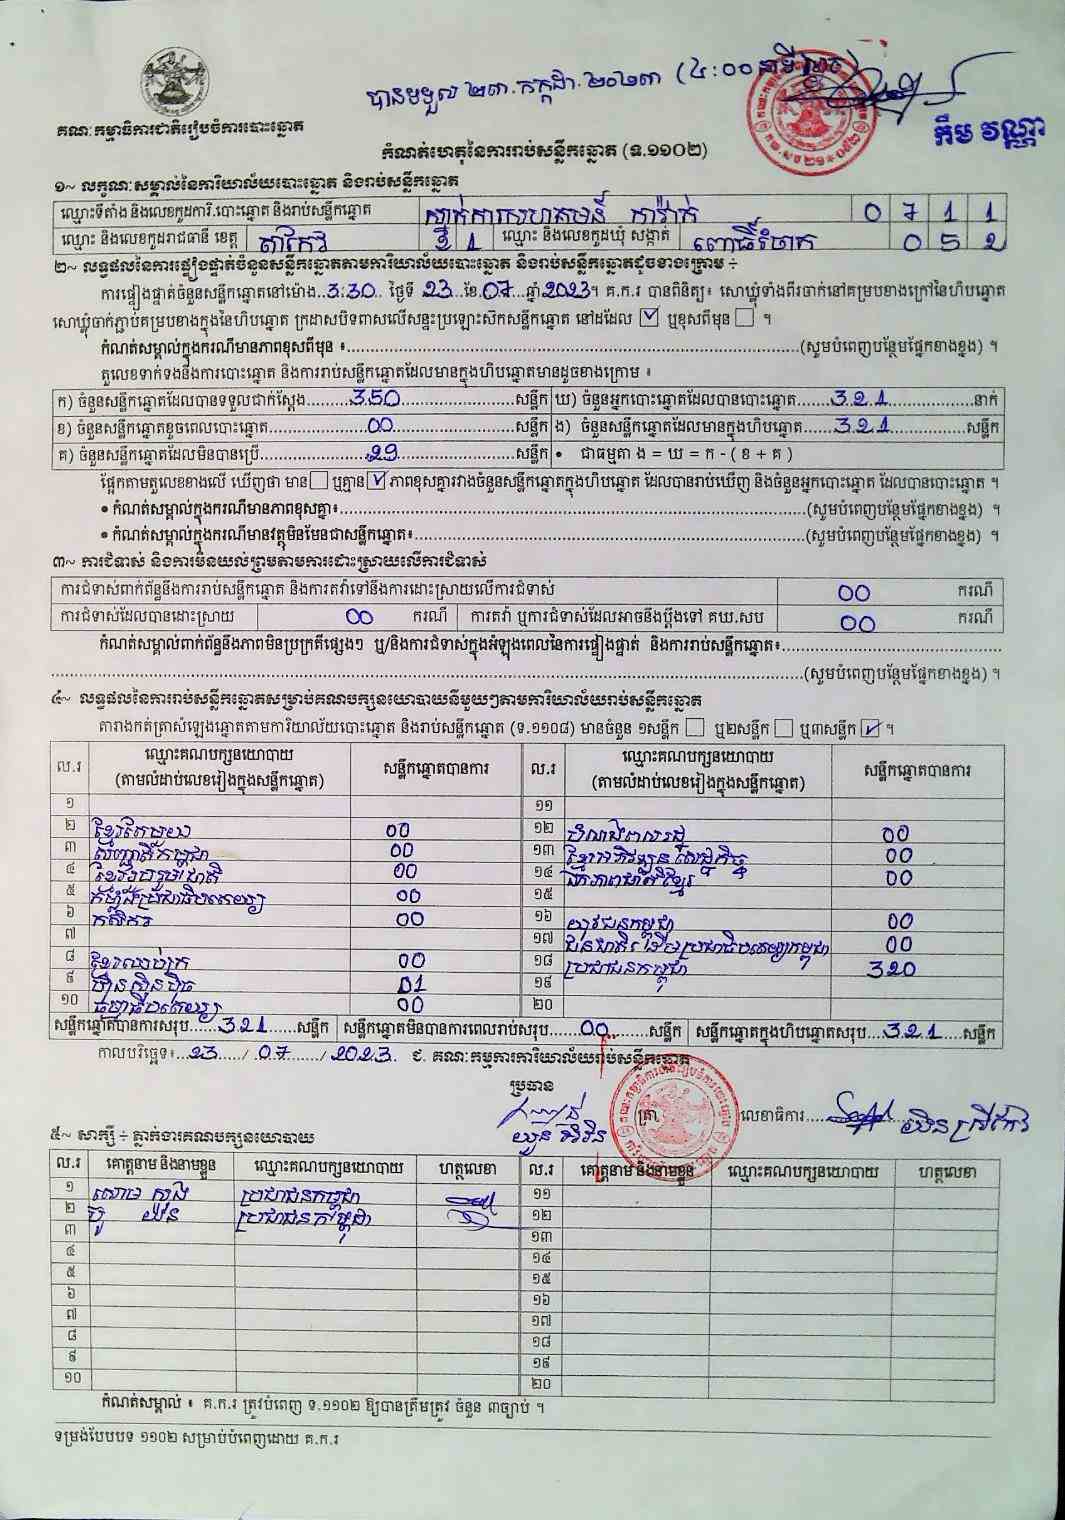 បានទទួល ២៣.កក្កដា.២០២៣ (៤:០០នាទី
គណៈកម្មាធិការជាតិរៀបចំការបោះឆ្នោត
គឹម វណ្ណា
កំណត់ហេតុនៃការរាប់សន្លឹកឆ្នោត (ទ.១១០២)
១~ លក្ខណៈសម្គាល់នៃការិយាល័យបោះឆ្នោត និងរាប់សន្លឹកឆ្នោត
ឈ្មោះទីតាំង និងលេខកូដការិ.បោះឆ្នោត និងរាប់សន្លឹកឆ្នោត ស្នាក់ការសហគមន៍ 0 7 1 1
ឈ្មោះ និងលេខកូដរាជធានី ខេត្ត តាកែវ 2 1 ឈ្មោះ និងលេខកូដឃុំ សង្កាត់ ពោធិ៍រំចាក 0 5 2
២~ លទ្ធផលនៃការផ្ទៀងផ្ទាត់ចំនួនសន្លឹកឆ្នោតតាមការិយាល័យបោះឆ្នោត និងរាប់សន្លឹកឆ្នោតដូចខាងក្រោម ÷
ការផ្ទៀងផ្ទាត់ចំនួនសន្លឹកឆ្នោតនៅម៉ោង..3:30.. ថ្ងៃទី 23 ខែ.07...ឆ្នាំ2023។ គ.ក.រ បានពិនិត្យ៖ សោឃ្លុំទាំងពីរចាក់នៅគម្របខាងក្រៅនៃហិបឆ្នោត
សោឃ្លុំចាក់ភ្ជាប់គម្របខាងក្នុងនៃហិបឆ្នោត ក្រដាសបិទពាសលើសន្ទះប្រឡោះសិកសន្លឹកឆ្នោត នៅដដែល ☑ ឬខុសពីមុន ☐ ។
កំណត់សម្គាល់ក្នុងករណីមានភាពខុសពីមុន ៖...(សូមបំពេញបន្ថែមផ្នែកខាងខ្នង) ។
តួលេខទាក់ទងនឹងការបោះឆ្នោត និងការរាប់សន្លឹកឆ្នោតដែលមានក្នុងហិបឆ្នោតមានដូចខាងក្រោម ៖
ក) ចំនួនសន្លឹកឆ្នោតដែលបានទទួលជាក់ស្តែង.......350.......សន្លឹក ឃ) ចំនួនអ្នកបោះឆ្នោតដែលបានបោះឆ្នោត.......321.......នាក់
ខ) ចំនួនសន្លឹកឆ្នោតខូចពេលបោះឆ្នោត.......00.......សន្លឹក ង) ចំនួនសន្លឹកឆ្នោតដែលមានក្នុងហិបឆ្នោត.......321.......សន្លឹក
គ) ចំនួនសន្លឹកឆ្នោតដែលមិនបានប្រើ.......29.......សន្លឹក • ជាធម្មតា ង = ឃ = ក - ( ខ + គ )
ផ្អែកតាមតួលេខខាងលើ ឃើញថា មាន ☐ ឬគ្មាន ☑ ភាពខុសគ្នារវាងចំនួនសន្លឹកឆ្នោតក្នុងហិបឆ្នោត ដែលបានរាប់ឃើញ និងចំនួនអ្នកបោះឆ្នោត ដែលបានបោះឆ្នោត ។
• កំណត់សម្គាល់ក្នុងករណីមានភាពខុសគ្នា៖...(សូមបំពេញបន្ថែមផ្នែកខាងខ្នង) ។
• កំណត់សម្គាល់ក្នុងករណីមានវត្ថុមិនមែនជាសន្លឹកឆ្នោត៖...(សូមបំពេញបន្ថែមផ្នែកខាងខ្នង) ។
៣~ ការជំទាស់ និងការមិនយល់ព្រមតាមការដោះស្រាយលើការជំទាស់
ការជំទាស់ពាក់ព័ន្ធនឹងការរាប់សន្លឹកឆ្នោត និងការតវ៉ាទៅនឹងការដោះស្រាយលើការជំទាស់ 00 ករណី
ការជំទាស់ដែលបានដោះស្រាយ 00 ករណី ការតវ៉ា ឬការជំទាស់ដែលអាចនឹងប្តឹងទៅ គឃ.សប 00 ករណី
កំណត់សម្គាល់ពាក់ព័ន្ធនឹងភាពមិនប្រក្រតីផ្សេងៗ ឬ/និងការជំទាស់ក្នុងអំឡុងពេលនៃការផ្ទៀងផ្ទាត់ និងការរាប់សន្លឹកឆ្នោត៖...
...(សូមបំពេញបន្ថែមផ្នែកខាងខ្នង) ។
៤~ លទ្ធផលនៃការរាប់សន្លឹកឆ្នោតសម្រាប់គណបក្សនយោបាយនីមួយៗតាមការិយាល័យរាប់សន្លឹកឆ្នោត
តារាងកត់ត្រាសំឡេងឆ្នោតតាមការិយាល័យបោះឆ្នោត និងរាប់សន្លឹកឆ្នោត (ទ.១១០៨) មានចំនួន ១សន្លឹក ☐ ឬ២សន្លឹក ☐ ឬ៣សន្លឹក ☑ ។
ល.រ ឈ្មោះគណបក្សនយោបាយ សន្លឹកឆ្នោតបានការ ល.រ ឈ្មោះគណបក្សនយោបាយ សន្លឹកឆ្នោតបានការ
(តាមលំដាប់លេខរៀងក្នុងសន្លឹកឆ្នោត) (តាមលំដាប់លេខរៀងក្នុងសន្លឹកឆ្នោត)
១ ១១
២ ខ្មែរតែមួយ 00 ១២ 00
៣ សញ្ជាតិកម្ពុជា 00 ១៣ ខ្មែរអភិវឌ្ឍន៍សេដ្ឋកិច្ច 00
៤ ខ្មែររួបរួមជាតិ 00 ១៤ ឯកភាពជាតិខ្មែរ 00
៥ កម្លាំងប្រជាធិបតេយ្យ 00 ១៥
៦ កសិករ 00 ១៦ យុវជនកម្ពុជា 00
៧ ១៧ ជនជាតិដើមប្រជាធិបតេយ្យកម្ពុជា 00
៨ ខ្មែរឈប់ក្រ 00 ១៨ ប្រជាជនកម្ពុជា 320
៩ ហ៊្វុនស៊ិនប៉ិច 01 ១៩
១០ ធម្មាធិបតេយ្យ 00 ២០
សន្លឹកឆ្នោតបានការសរុប......321......សន្លឹក សន្លឹកឆ្នោតមិនបានការពេលរាប់សរុប......00......សន្លឹក សន្លឹកឆ្នោតក្នុងហិបឆ្នោតសរុប......321......សន្លឹក
កាលបរិច្ឆេទ៖...23..../.07..../2023. ជ. គណៈកម្មការការិយាល័យរាប់សន្លឹកឆ្នោត
ប្រធាន
ត្រា លេខាធិការ
៥~ សាក្សី ÷ ភ្នាក់ងារគណបក្សនយោបាយ
ល.រ គោត្តនាម និងនាមខ្លួន ឈ្មោះគណបក្សនយោបាយ ហត្ថលេខា ល.រ គោត្តនាម និងនាមខ្លួន ឈ្មោះគណបក្សនយោបាយ ហត្ថលេខា
១ ប្រជាជនកម្ពុជា ១១
២ ប្រជាជនកម្ពុជា ១២
៣ ១៣
៤ ១៤
៥ ១៥
៦ ១៦
៧ ១៧
៨ ១៨
៩ ១៩
១០ ២០
កំណត់សម្គាល់ ៖ គ.ក.រ ត្រូវបំពេញ ទ.១១០២ ឱ្យបានត្រឹមត្រូវ ចំនួន ៣ច្បាប់ ។
ទម្រង់បែបបទ ១១០២ សម្រាប់បំពេញដោយ គ.ក.រ